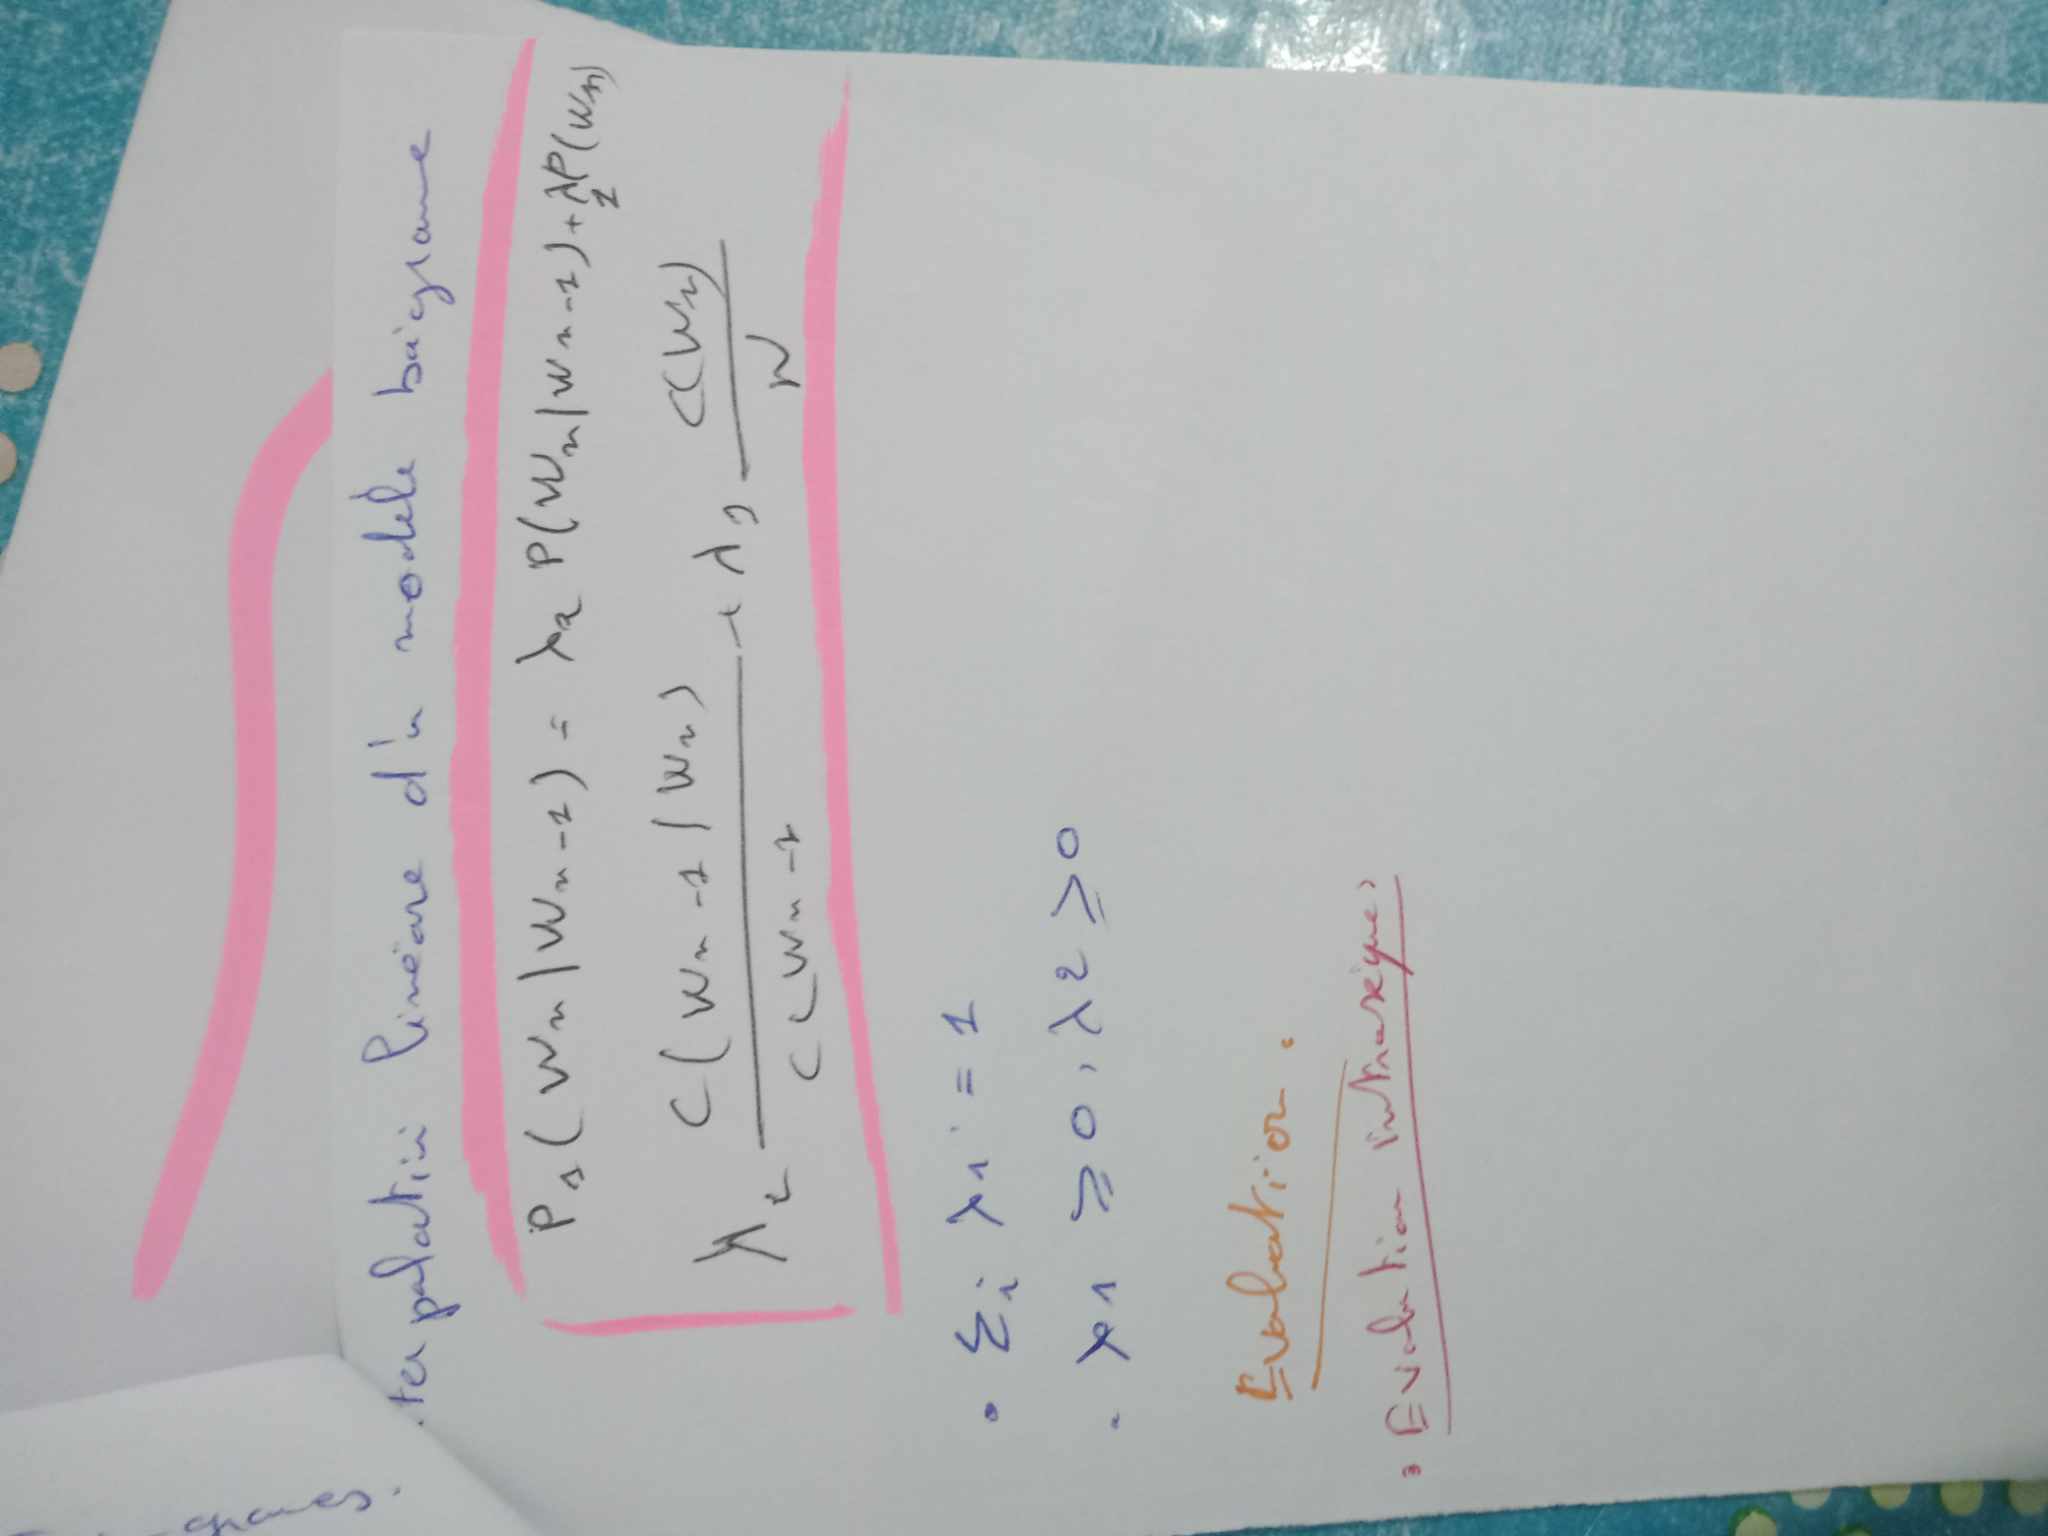 .terpolation linéaire d'u modèle baigrame
P₁(Wn|Wn-1) = λ2 P(Wn|Wn-1) + λ1 P(Wn)
λ2 C(Wn-1|Wn) / C(Wn-1 + λ1 C(Wn) / N
• Σi λi = 1
• λ1 ≥ 0, λ2 ≥ 0
Evaluation.
• Evalation intrasèque: